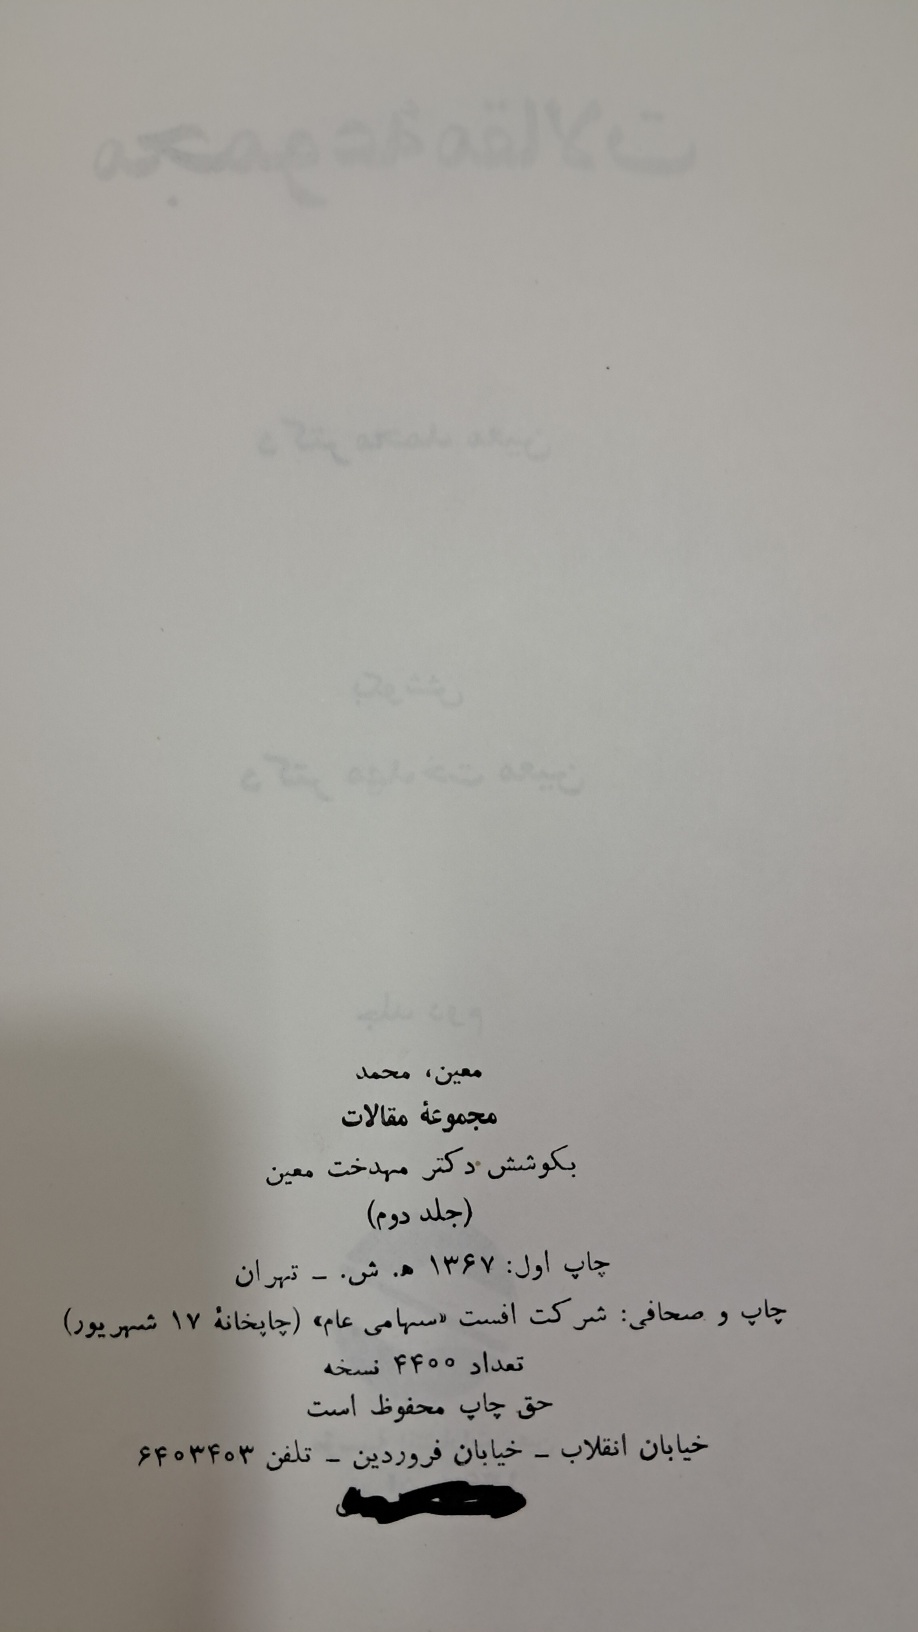 معین، محمد
مجموعهٔ مقالات
بکوشش دکتر مهدخت معین
(جلد دوم)
چاپ اول: ۱۳۶۷ ه‍. ش. ـ تهران
چاپ و صحافی: شرکت افست «سهامی عام» (چاپخانهٔ ۱۷ شهریور)
تعداد ۴۴۰۰ نسخه
حق چاپ محفوظ است
خیابان انقلاب ـ خیابان فروردین ـ تلفن ۶۴۰۳۴۰۳